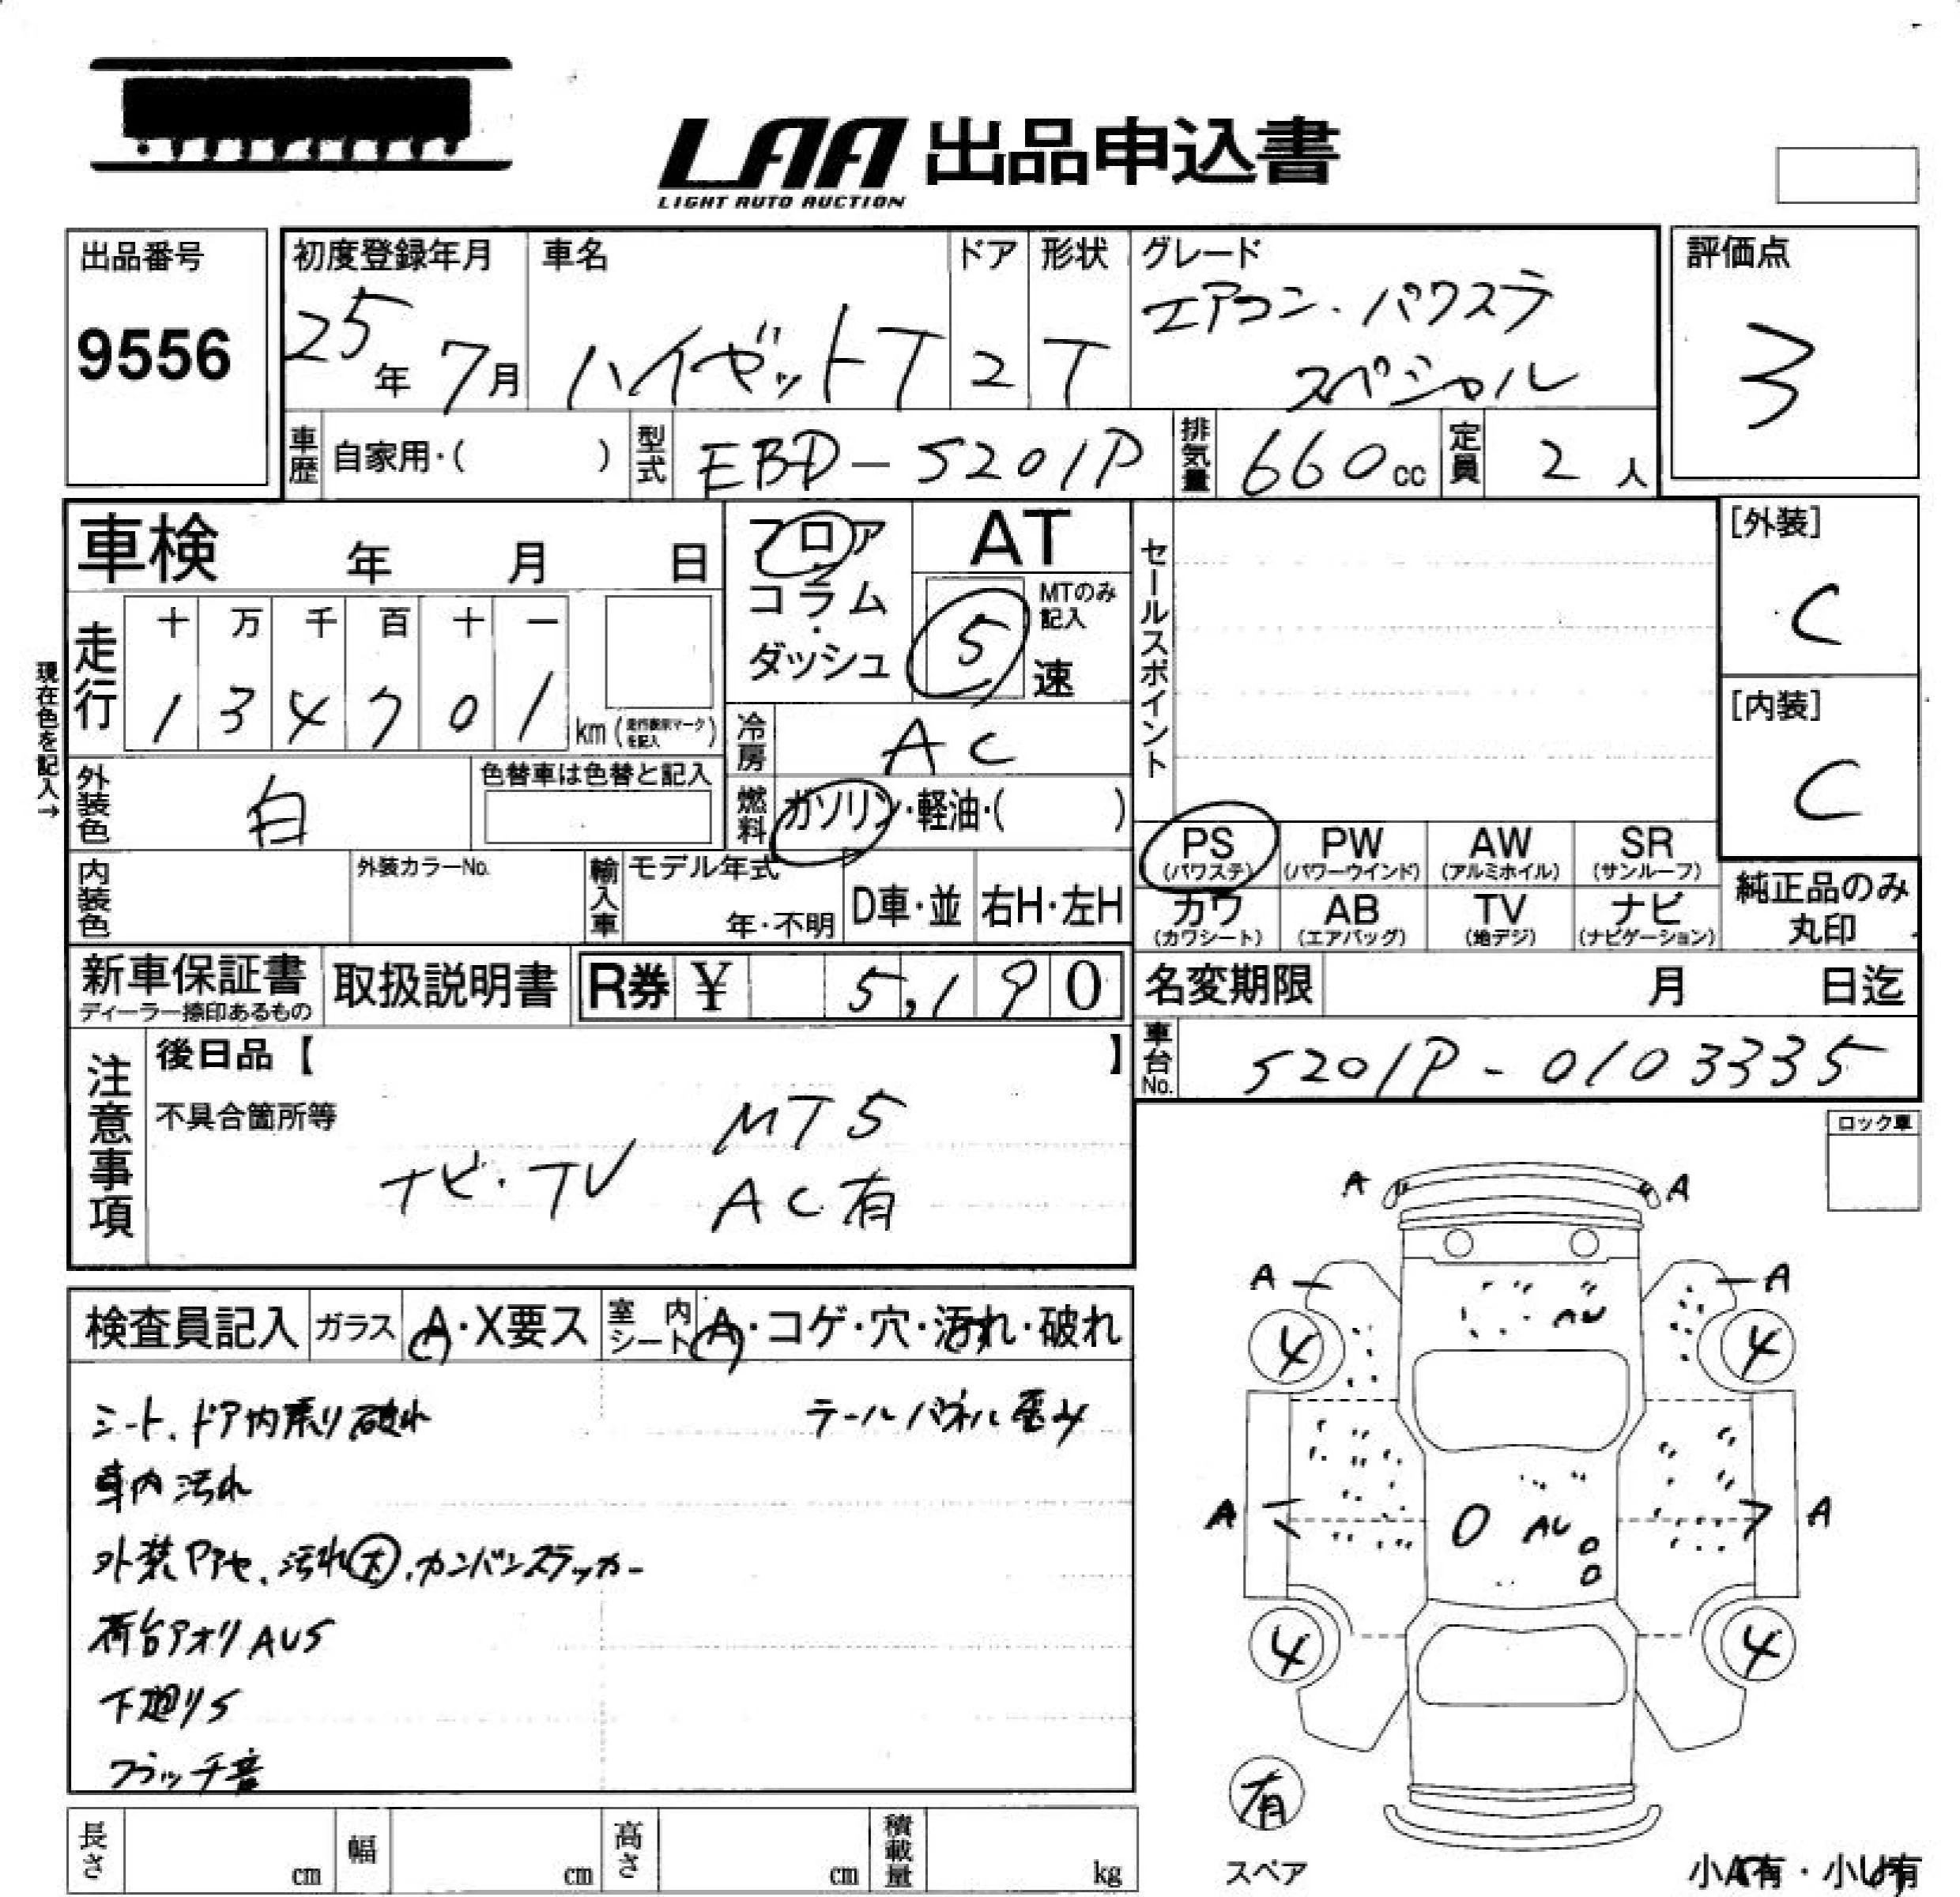 LAA 出品申込書
LIGHT AUTO AUCTION
出品番号
9556
初度登録年月
25年 7月
車名
ハイゼットT
ドア
2
形状
T
グレード
エアコン・パワステ
スペシャル
評価点
3
車歴 自家用・( )
型式 EBD-S201P
排気量 660cc
定員 2人
車検 年 月 日
フロア
コラム
・
ダッシュ
AT
MTのみ記入
5 速
セールスポイント
[外装]
C
[内装]
C
現在色を記入→
走行
十 万 千 百 十 一
1 3 4 7 0 1 km (走行表示マークを記入)
冷房 AC
外装色 白
色替車は色替と記入
燃料 ガソリン・軽油・( )
PS (パワステ) PW (パワーウインド) AW (アルミホイル) SR (サンルーフ)
カワ (カワシート) AB (エアバッグ) TV (地デジ) ナビ (ナビゲーション)
純正品のみ
丸印
内装色
外装カラーNo.
輸入車
モデル年式
年・不明
D車・並
右H・左H
新車保証書
ディーラー捺印あるもの
取扱説明書
R券 ¥ 5,190
名変期限 月 日迄
車台No. S201P-0103335
注意事項
後日品【 】
不具合箇所等
MT5
ナビ・TV
AC有
ロック車
検査員記入
ガラス A・X要ス
室内シート A・コゲ・穴・汚れ・破れ
シート、ドア内張り破れ
テールパネル歪み
車内汚れ
外装 汚れ大、カンバンステッカー
荷台アオリAUS
下廻りS
クラッチ音
A A
A A
AU
4 4
A A
AU
4 4
有
スペア
小A有・小U有
長さ cm
幅 cm
高さ cm
積載量 kg